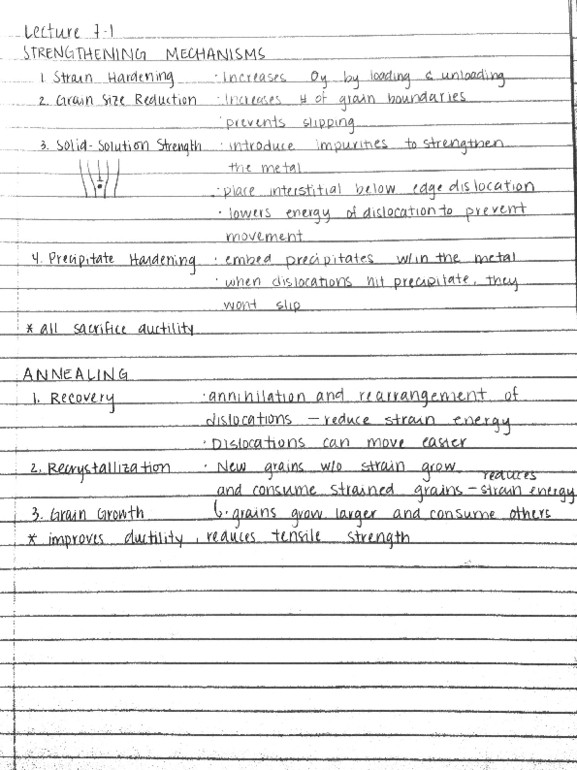 Lecture 7-1
STRENGTHENING MECHANISMS
1. Strain Hardening · Increases σy by loading & unloading
2. Grain Size Reduction · Increases # of grain boundaries
· prevents slipping
3. Solid-Solution Strength · introduce impurities to strengthen
the metal
· place interstitial below edge dislocation
· lowers energy of dislocation to prevent
movement
4. Precipitate Hardening · embed precipitates w/in the metal
· when dislocations hit precipitate, they
wont slip
* all sacrifice ductility
ANNEALING
1. Recovery · annihilation and rearrangement of
dislocations - reduce strain energy
· Dislocations can move easier
2. Recrystallization · New grains w/o strain grow
and consume strained grains - reduces strain energy
3. Grain Growth · grains grow larger and consume others
* improves ductility, reduces tensile strength